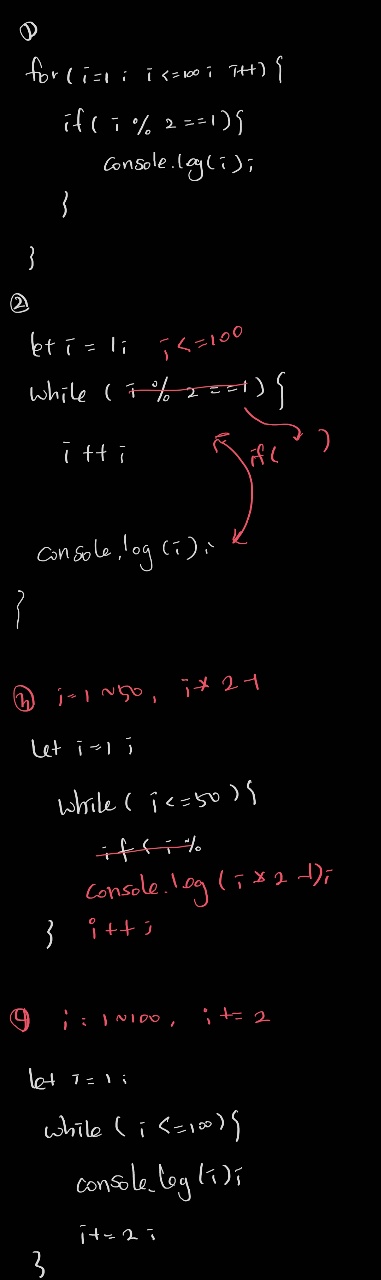 ①
for ( i=1 ; i <=100 ; i++) {
if ( i % 2 ==1) {
console.log(i);
}
}
②
let i = 1; i<=100
while ( i % 2 ==1) {
i ++ ; if ( )
console.log (i);
}
③ i=1 ~50, i* 2 -1
let i=1 ;
while ( i <=50 ) {
if ( i %
console.log ( i * 2 -1);
} i++ ;
④ i = 1~100, i += 2
let i=1 ;
while ( i <=100) {
console.log (i);
i+= 2 ;
}